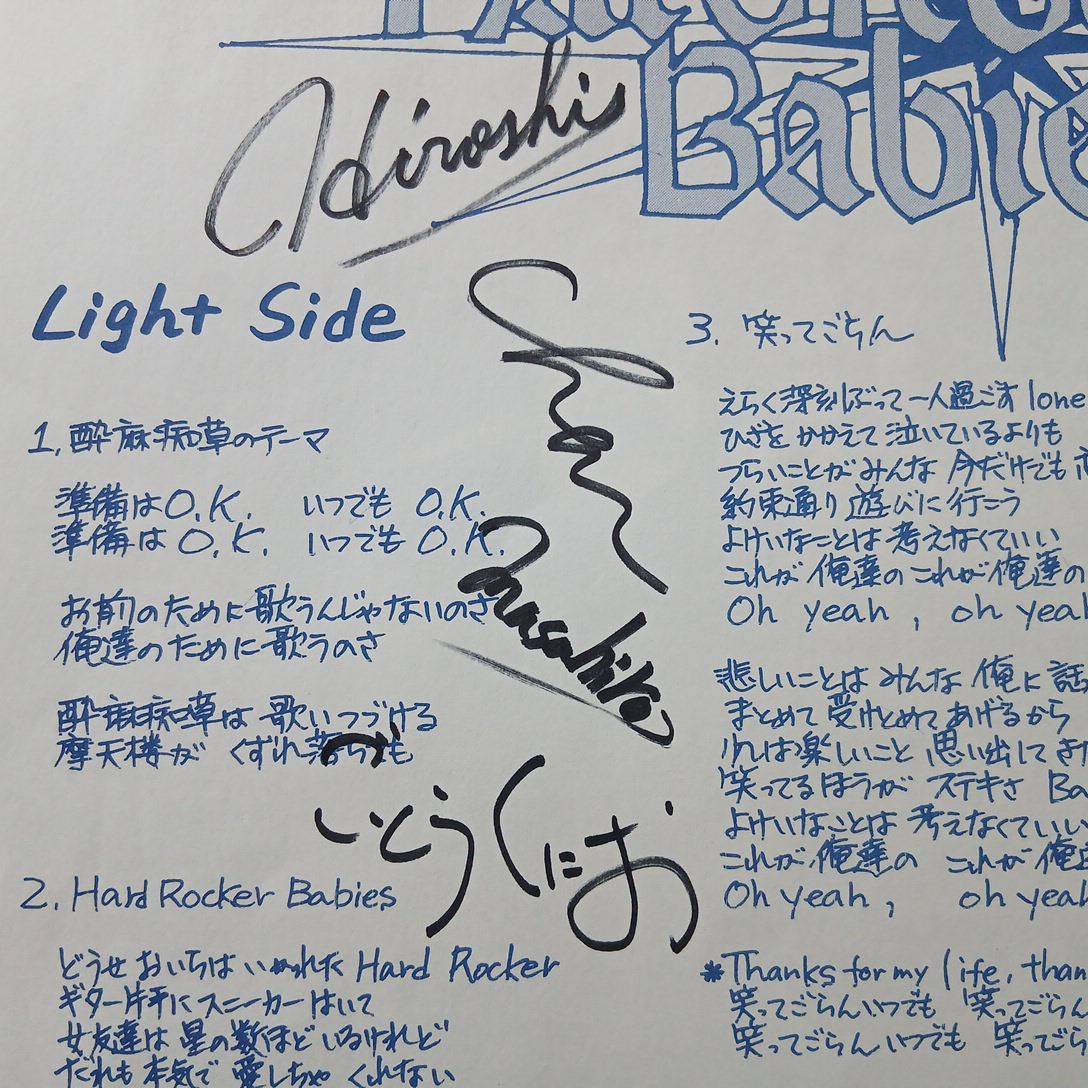 Babie
Hiroshi
Light Side
Shan
Masahiko
いとうくにお
1. 酔麻痴草のテーマ
準備は O.K. いつでも O.K.
準備は O.K. いつでも O.K.
お前のために歌うんじゃないのさ
俺達のために歌うのさ
酔麻痴草は歌いつづける
摩天楼が くずれ落ちても
2. Hard Rocker Babies
どうせおいらは いかれた Hard Rocker
ギター片手にスニーカーはいて
女友達は星の数ほどいるけれど
だれも本気で 愛しちゃ くれない
3. 笑ってごらん
えらく深刻ぶって一人過ごす lone
ひざを かかえて 泣いているよりも
つらいことが みんな 今だけでも
約束通り 遊びに行こう
よけいなことは 考えなくていい
これが 俺達の これが 俺達の
Oh yeah , oh yea
悲しいことは みんな 俺に 話
まとめて 受けとめて あげるから
楽しいこと 思い出して
笑ってるほうが ステキさ Ba
よけいなことは 考えなくていい
これが 俺達の これが 俺達
Oh yeah , oh yeah
*Thanks for my life, than
笑ってごらんいつでも 笑ってごらん
笑ってごらん いつでも 笑ってごら